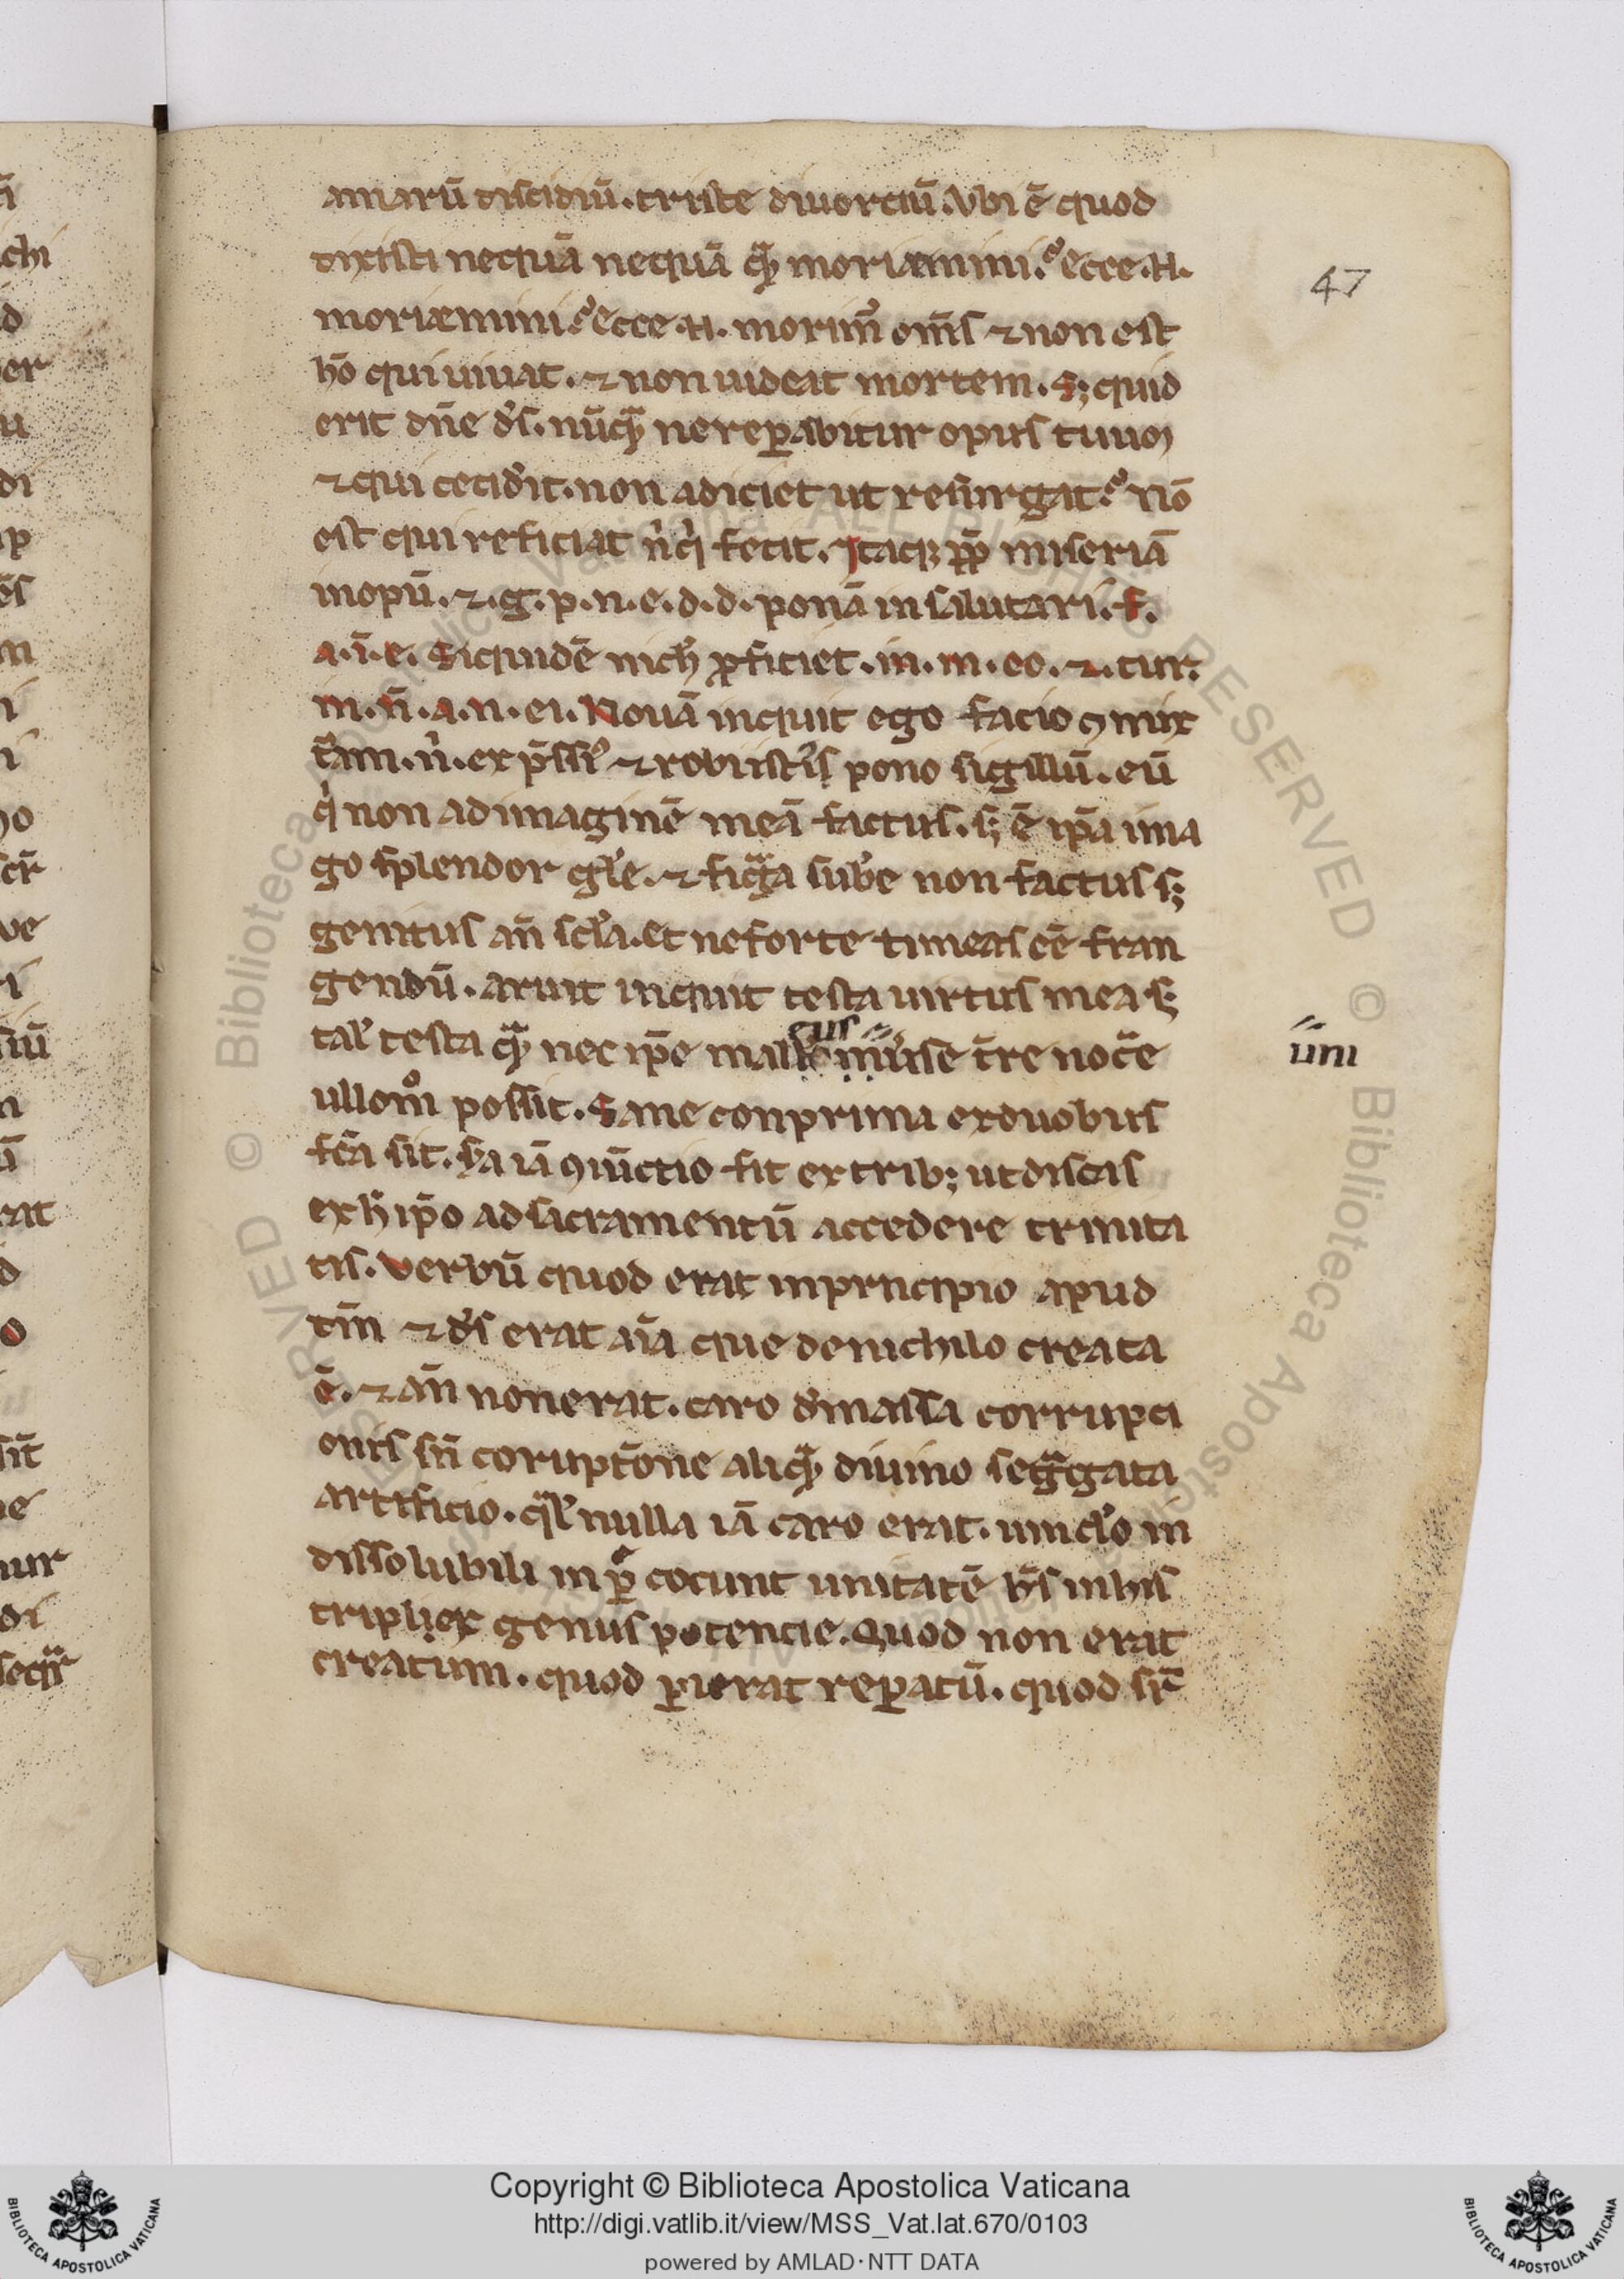 amarū discidiū. triste diuorciū. Vbi ē quod
dixisti nequā nequā qͣ moriemini? ecce .n.
moriemini? ecce .n. morimᷣ om̄s ⁊ non est
hō qui uiuat. ⁊ non uideat mortem. S; quid
erit dn̄e ds̄. nūqͣ ne reꝑabitur opus tuum
⁊ qui cecidit. non adiciet ut resurgat? Nō
est qui reficiat nͥ qͥ fecit. Itaqꝫ ꝓpͣ miseriā
inopū. ⁊ .g. p. n. e. d. d. ponā in salutari. f.
a. ī. e. Siquidē nich̄ ꝓficiet. in. m. eo. ⁊. tur.
in. n̄. a. n. ei. Nouā inquit ego facio ꝯmix
tͣam. n̄. exp̄ssiꝰ ⁊ robustiꝰ pono sigillū. eū
qͥ non ad imaginē meā factus. s; ē ip̄a ima
go splendor gl̄e. ⁊ figͣa sub̄e non factus s;
genitus an̄ sc̄la. Et ne forte timeas eē fran
gendū. aruit inquit testa uirtus mea s;
tal̄ testa qͣ nec ip̄e malleus
ullomͦ possit. Sane con prima ex duobus
fc̄a sit. sc̄a iā ꝯiūctio fit ex trib; ut discas
ex h̄ ip̄o ad sacramentū accedere trinita
tis. Verbū quod erat in principio apud
dm̄ ⁊ ds̄ erat aīa que de nichilo creata
ē. ⁊ an̄ non erat. caro de massa corrupci
onis sn̄ corupt̄one aliqͣ diuino segͣgata
artificio. qͣl̄ nulla iā caro erat. uinclo in
dissolubili in ꝑ cocunt unitatē hͣs in his
triplex genus potencie. Quod non erat
creatum. quod ꝑierat reꝑatū. quod sr̄
47
uni
Copyright © Biblioteca Apostolica Vaticana
http://digi.vatlib.it/view/MSS_Vat.lat.670/0103
powered by AMLAD·NTT DATA